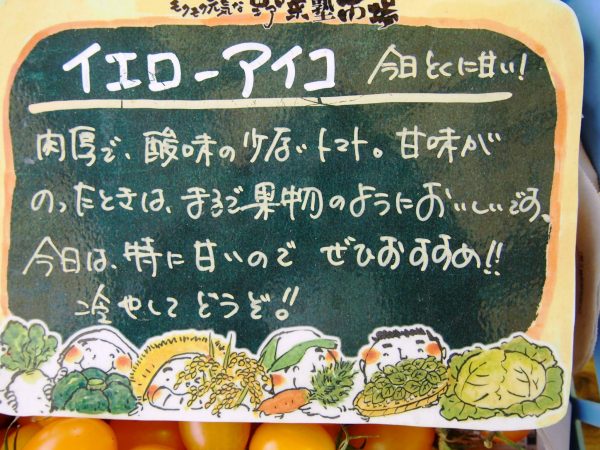 モクモク元気な野菜塾市場
イエローアイコ 今日とくに甘い!
肉厚で、酸味の少ないトマト。甘味が
のったときは、まるで果物のようにおいしいです。
今日は、特に甘いので ぜひおすすめ!!
冷やしてどうぞ!!